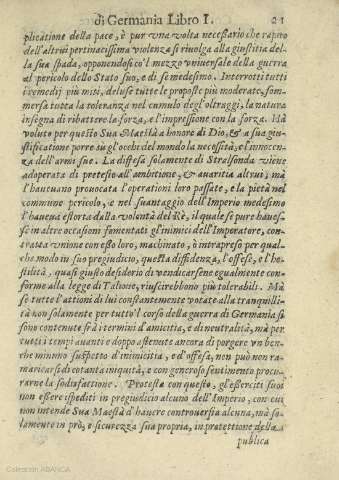 di Germania Libro I. 21
plicatione della pace, è pur vna volta necessario che rapito
dell'altrui pertinacissima violenza si riuolga alla giustitia del-
la sua spada, opponendosi co'l mezzo vniuersale della guerra
al pericolo dello Stato suo, e di se medesimo. Interrotti tutti
i remedij più miti, deluse tutte le proposte più moderate, som-
mersa tutta la toleranza nel cumulo degl'oltraggi, la natura
insegna di ribattere la forza, e l'impressione con la forza. Hà
voluto per questo Sua Maestà à honore di Dio, & à sua giu-
stificatione porre sù gl'occhi del mondo la necessità, e l'innocen-
za dell'armi sue. La diffesa solamente di Stralsonda viene
adoperata di pretesto all'ambitione, & auaritia altrui; mà
l'haueuano prouocata l'operationi loro passate, e la pietà nel
commune pericolo, e nel suantaggio dell'Imperio medesimo
l'haueua estorta dalla volontà del Rè, il quale se pure hauesse
se in altre occasioni fomentati gl'inimici dell'Imperatore, con-
tratta vnione con esso loro, machinato, è intrapreso per qual-
che modo in suo pregiudicio, questa diffidenza, l'offese, e l'ho-
stilità, quasi giusto desiderio di vendicarsene egualmente con-
forme alla legge di Talione, riuscirebbono più tolerabili. Mà
se tutte l'attioni di lui constantemente votate alla tranquilli-
tà non solamente per tutto'l corso della guerra di Germania si
sono contenute frà i termini d'amicitia, e di neutralità, mà per
tutti i tempi auanti e doppo astenute ancora di porgere vn ben-
che minimo suspetto d'inimicitia, e d'offesa, non può non ra-
maricarsi di cotanta iniquità, e con generoso sentimento procu-
rarne la sodisfattione. Protesta con questo, gl'esserciti suoi
non essere ispediti in pregiudicio alcuno dell'Imperio, con cui
non intende Sua Maestà d'hauere controuersia alcuna, mà so-
lamente in prò, e sicurezza sua propria, in protettione della
publica
Colección ABANCA